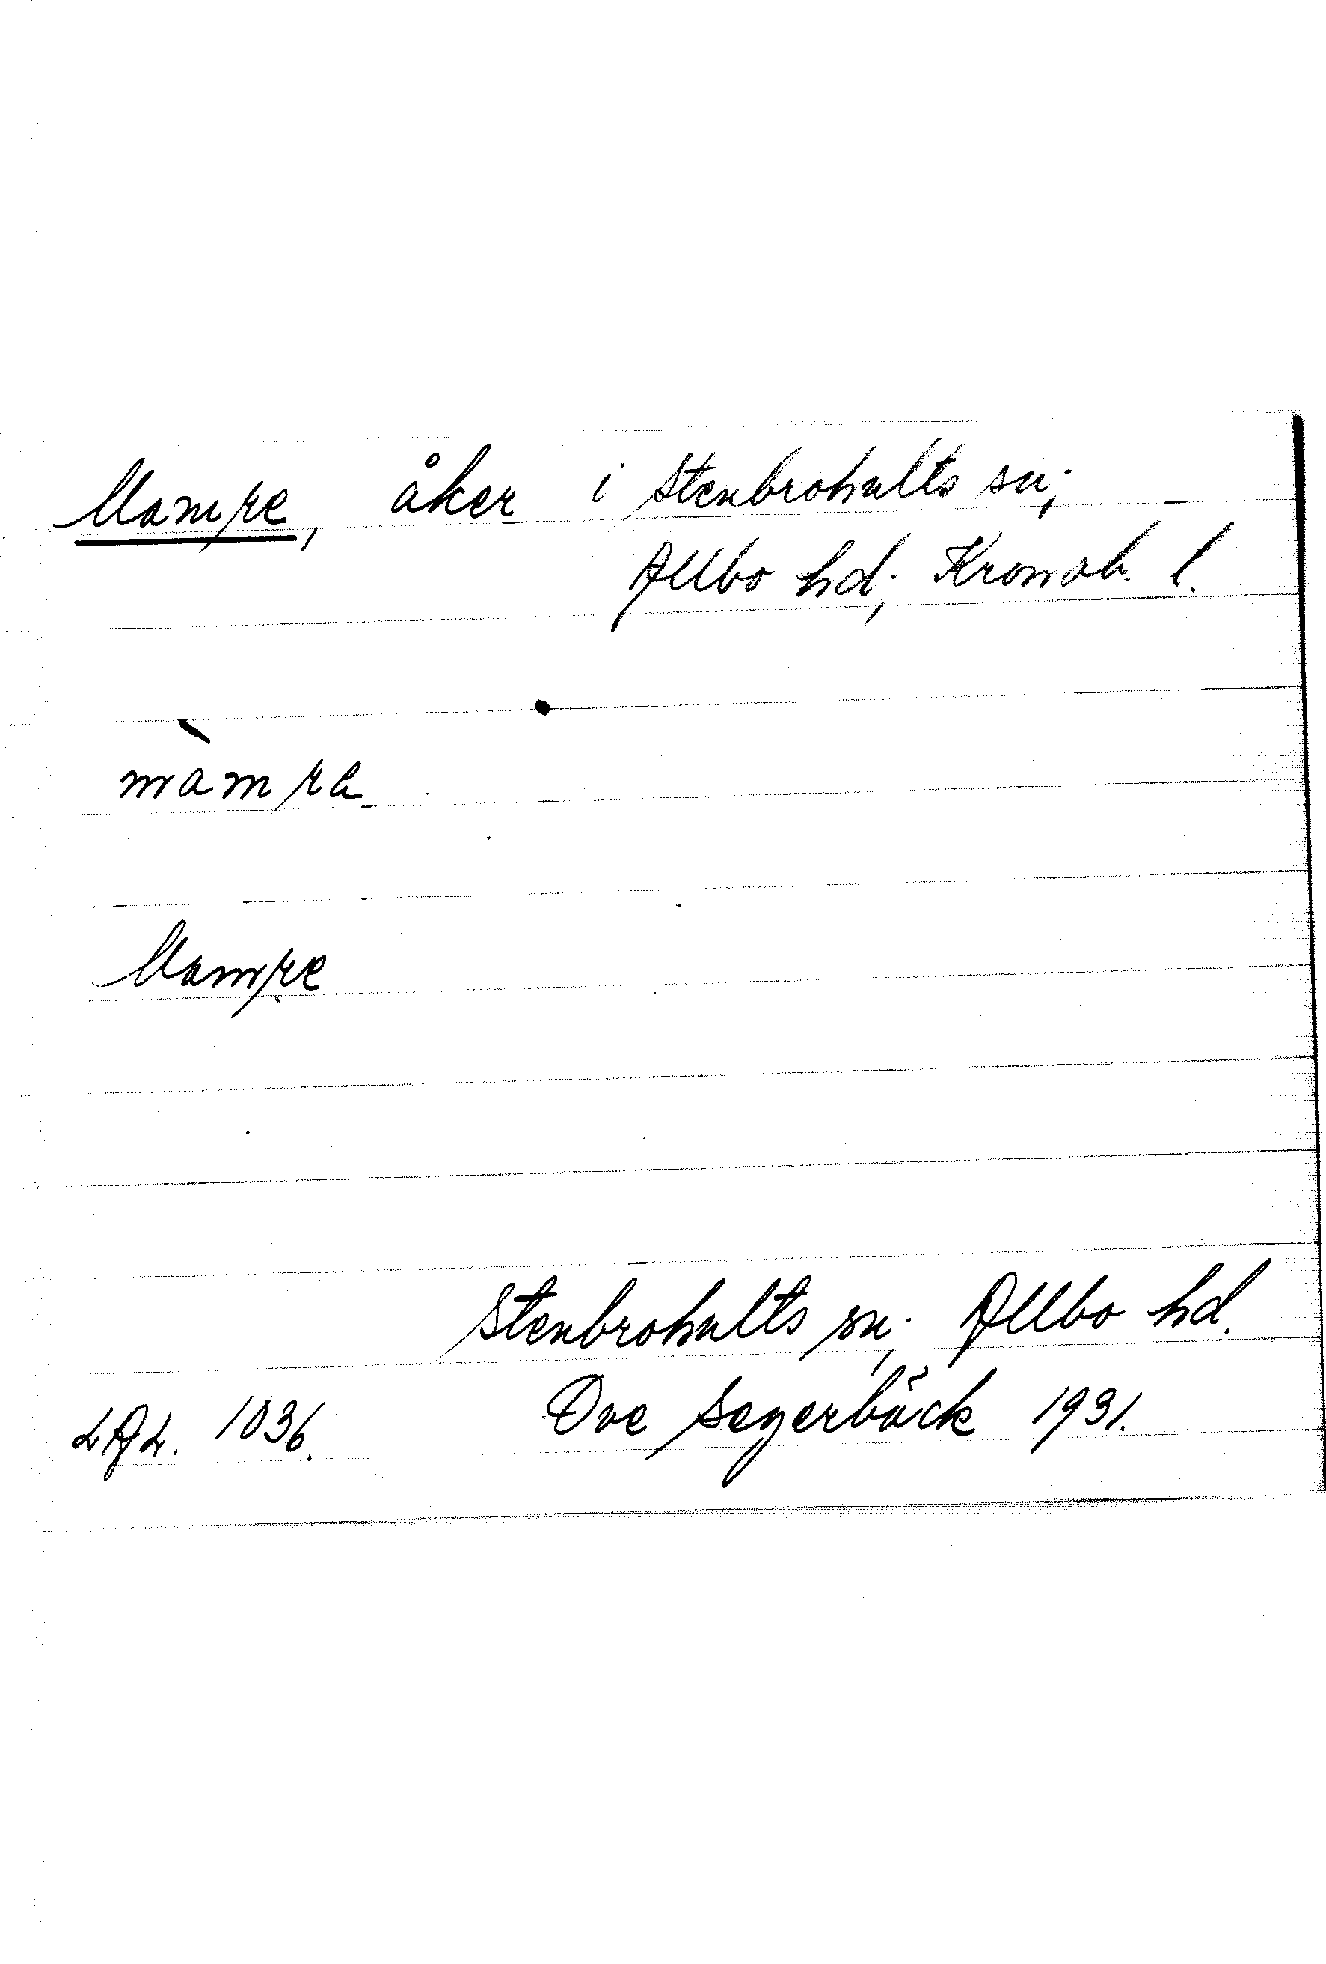 Mamre, åker i Stenbrohults sn;
Allbo hd; Kronob. l.
màmra
Mamre
Stenbrohults sn; Allbo hd.
LAL. 1036. Ove Segerbäck 1931.